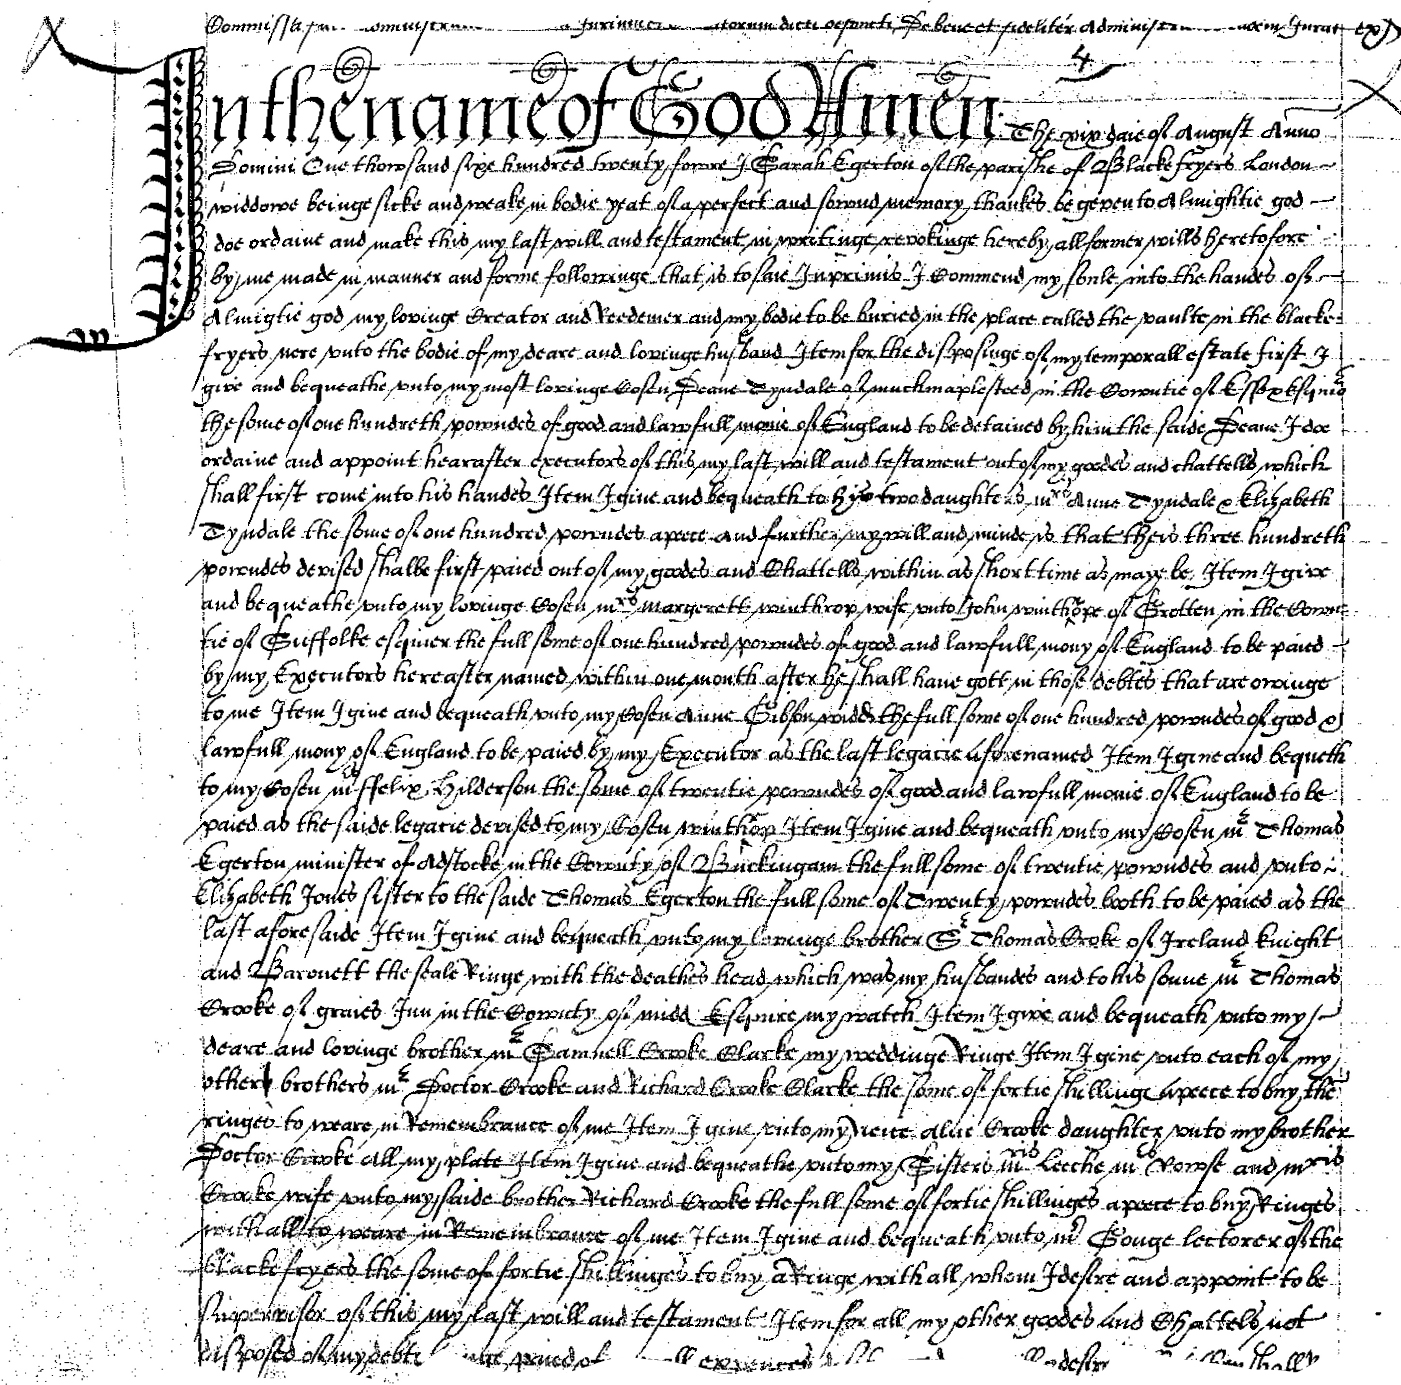 Commissa de bene et fideliter Administ Jurat exr
4
In the name of God Amen The xix daie of August Anno
Domini One thowsand sixe hundred twenty fowre I Sarah Egerton of the parishe of Blackefryers London
widdowe beinge sicke and weake in bodie yeat of a perfect and sownd memory thankes be geven to Almightie god
doe ordaine and make this my last will and testament in writinge revokinge hereby all former wills heretofore
by me made in manner and forme followinge that is to saie Inprimis I Commend my soule into the handes of
Almigtie god my lovinge Creator and Reedemer and my bodie to be buried in the place called the vaulte in the blacke
fryers nere vnto the bodie of my deare and lovinge husband Item for the disposinge of my temporall estate first I
give and bequeathe vnto my most lovinge Cosen Deane Tyndale of muchmaplesteed in the Cowntie of Essex Esquior
the some of one hundreth powndes of good and lawfull monie of England to be detained by him the saide Deane I doe
ordaine and appoint hearafter executors of this my last will and testament out of my goodes and chattells which
shall first come into his handes Item I give and bequeath to hys two daughters mrs Anne Tyndale & Elizabeth
Tyndale the some of one hundred powndes apeece and further my will and minde is that theis three hundreth
powndes devised shalbe first paied out of my goodes and Chattells within as short time as maye be Item I give
and bequeathe vnto my lovinge Cosen mrs margerett winthrop wife vnto John winthrope of Grotten in the Cown
tie of Suffolke esquier the full some of one hundred powndes of good and lawfull mony of England to be paied
by my Executors hereafter named within one month after he shall have gott in those debtes that are owinge
to me Item I give and bequeath vnto my Cosen Anne Gibson widd the full some of one hundred powndes of good &
lawfull mony of England to be paied by my Executor as the last legacie aforenamed Item I give and bequeth
to my Cosen mr ffelix Hilderson the some of twentie powndes of good and lawfull monie of England to be
paied as the saide legacie devised to my Cosen winthrop Item I give and bequeath vnto my Cosen mr Thomas
Egerton minister of Adstocke in the Cownty of Buckingam the full some of twentie powndes and vnto
Elizabeth Jones sister to the saide Thomas Egerton the full some of Twenty powndes booth to be paied as the
last aforesaide Item I give and bequeath vnto my lovinge brother Sr Thomas Croke of Ireland knight
and Baronett the seale Ringe with the deathes head which was my husbandes and to his sonne mr Thomas
Crooke of graies Inn in the Cownty of midd Esquire my watch Item I give and bequeath vnto my
deare and lovinge brother mr Samuell Crooke Clarke my weddinge Ringe Item I give vnto each of my
other brothers mr Doctor Crooke and Richard Crooke Clarke the some of fortie shillinge apeece to buy the
ringes to weare in Remembrance of me Item I give vnto my neice alice Crooke daughter vnto my brother
Doctor Crooke all my plate Item I give and bequeathe vnto my Sisters mris Leeche mris Rowse and mris
Crooke wife vnto my saide brother Richard Crooke the full some of fortie shillinges apeece to buy Ringes
withall to weare in Remembrance of me Item I give and bequeath vnto mr Gouge lectorer of the
blackefryers the some of fortie shillinges to buy a Ringe withall whom I desire and appoint to be
supervisor of this my last will and testament Item for all my other goodes and Chattels not
disposed of my debt paied expences desire shall